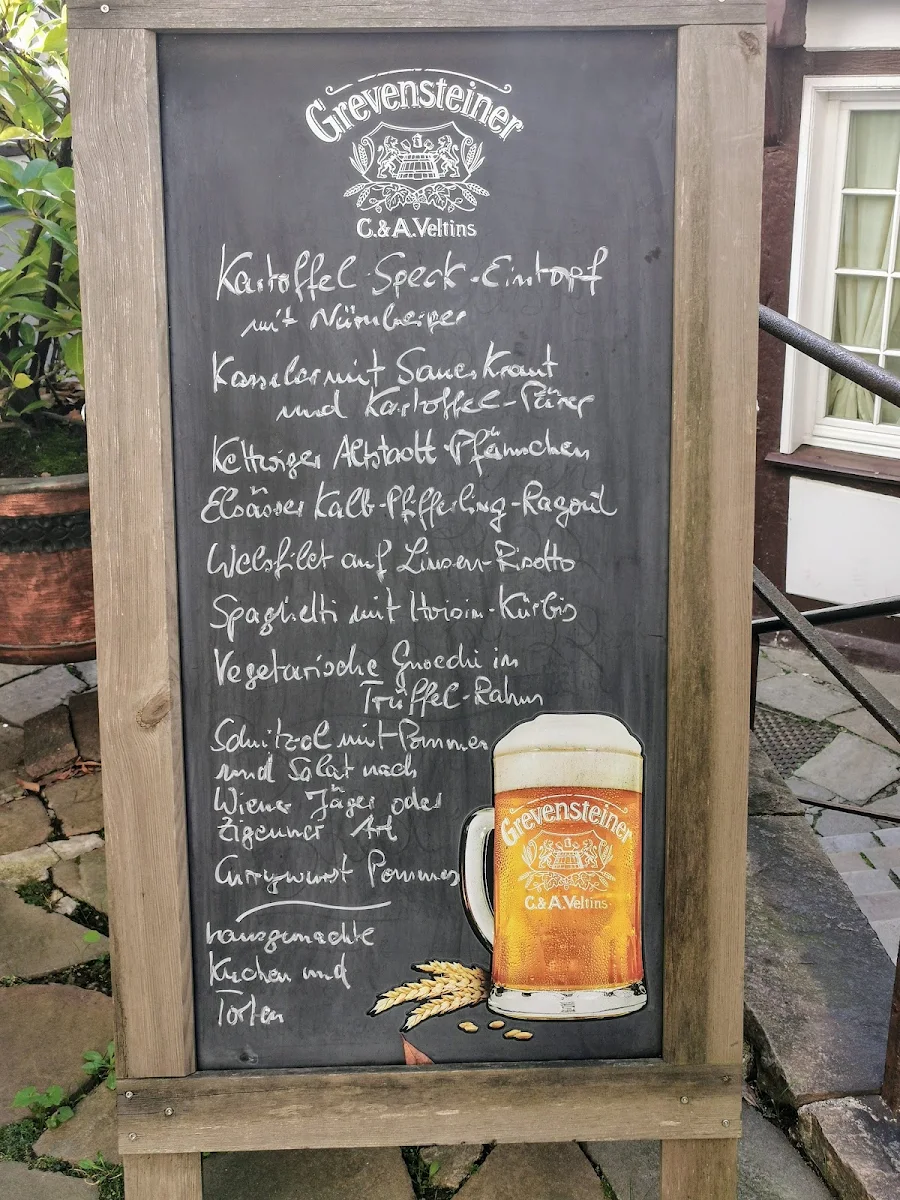 Grevensteiner
C.&A.Veltins
Kartoffel-Speck-Eintopf
mit Nürnberger
Kassler mit Sauer Kraut
und Kartoffel-Pürer
Kettwiger Altstadt-Pfännchen
Elsässer Kalb-Pfifferling-Ragout
Welsfilet auf Linsen-Risotto
Spaghetti mit Hoisin-Kürbis
Vegetarische Gnocchi in
Trüffel-Rahm
Schnitzel mit Pommes
und Salat nach
Wiener Jäger oder
Zigeuner Art
Currywurst Pommes
hausgemachte
Kuchen und
Torten
Grevensteiner
C.&A.Veltins